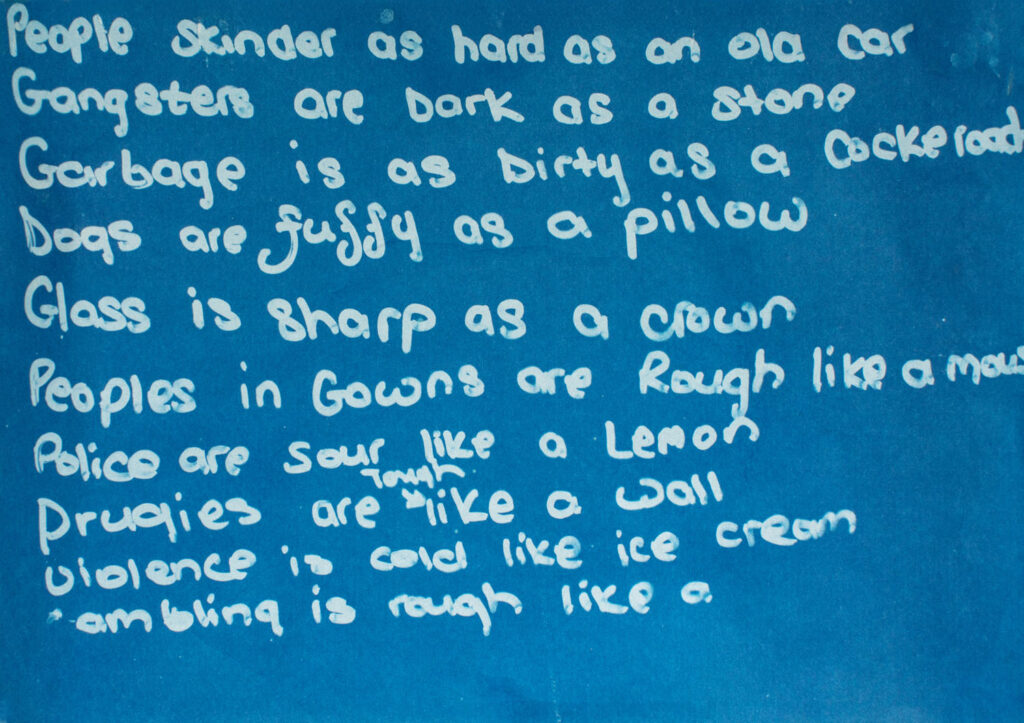 People skinder as hard as an old car
Gangsters are Dark as a stone
Garbage is as Dirty as a Cockeroach
Dogs are fuffy as a pillow
Glass is sharp as a crown
Peoples in Gowns are Rough like a mous
Police are sour like a Lemon
Drugies are Tough like a wall
violence is cold like ice cream
ambling is rough like a